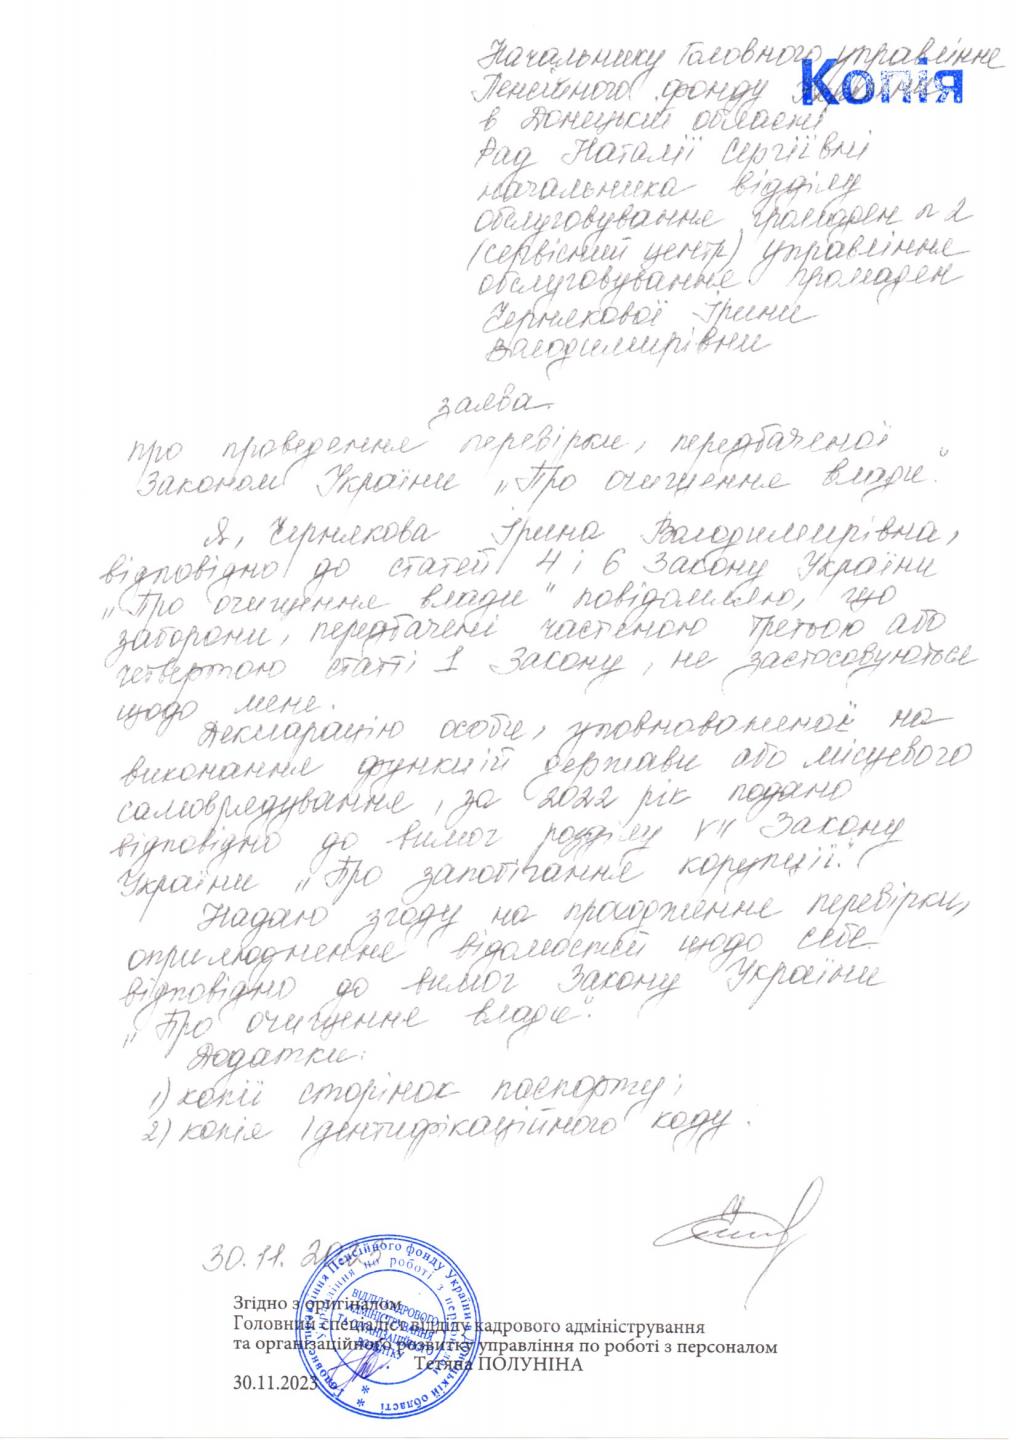 Копія
Начальнику Головного управління
Пенсійного фонду України
в Донецькій області
Рад Наталії Сергіївні
начальника відділу
обслуговування громадян № 2
(сервісний центр) управління
обслуговування громадян
Чернякової Ірини
Володимирівни
заява
про проведення перевірки, передбаченої
Законом України „Про очищення влади".
Я, Чернякова Ірина Володимирівна,
відповідно до статей 4 і 6 Закону України
„Про очищення влади" повідомляю, що
заборони, передбачені частиною третьою або
четвертою статті 1 Закону, не застосовуються
щодо мене.
Декларацію особи, уповноваженої на
виконання функцій держави або місцевого
самоврядування, за 2022 рік подано
відповідно до вимог розділу VII Закону
України „Про запобігання корупції".
Надаю згоду на проходження перевірки,
оприлюднення відомостей щодо себе
відповідно до вимог Закону України
„Про очищення влади".
Додатки:
1) копії сторінок паспорту;
2) копія ідентифікаційного коду.
30.11.2023
Згідно з оригіналом
Головний спеціаліст відділу кадрового адміністрування
та організаційного розвитку управління по роботі з персоналом
Тетяна ПОЛУНІНА
30.11.2023
Головне управління Пенсійного фонду України в Донецькій області
управління по роботі з персоналом
ВІДДІЛ КАДРОВОГО
АДМІНІСТРУВАННЯ
ТА ОРГАНІЗАЦІЙНОГО
РОЗВИТКУ